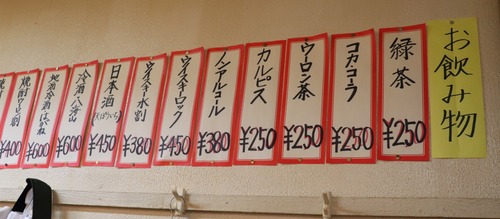 お飲み物
緑茶
¥250
コカ・コーラ
¥250
ウーロン茶
¥250
カルピス
¥250
ノンアルコール
¥380
ウイスキーロック
¥450
ウイスキー水割
¥380
日本酒
¥450
冷酒八海山
¥600
地酒冷酒はかね
¥600
焼酎ウーロン割
¥400